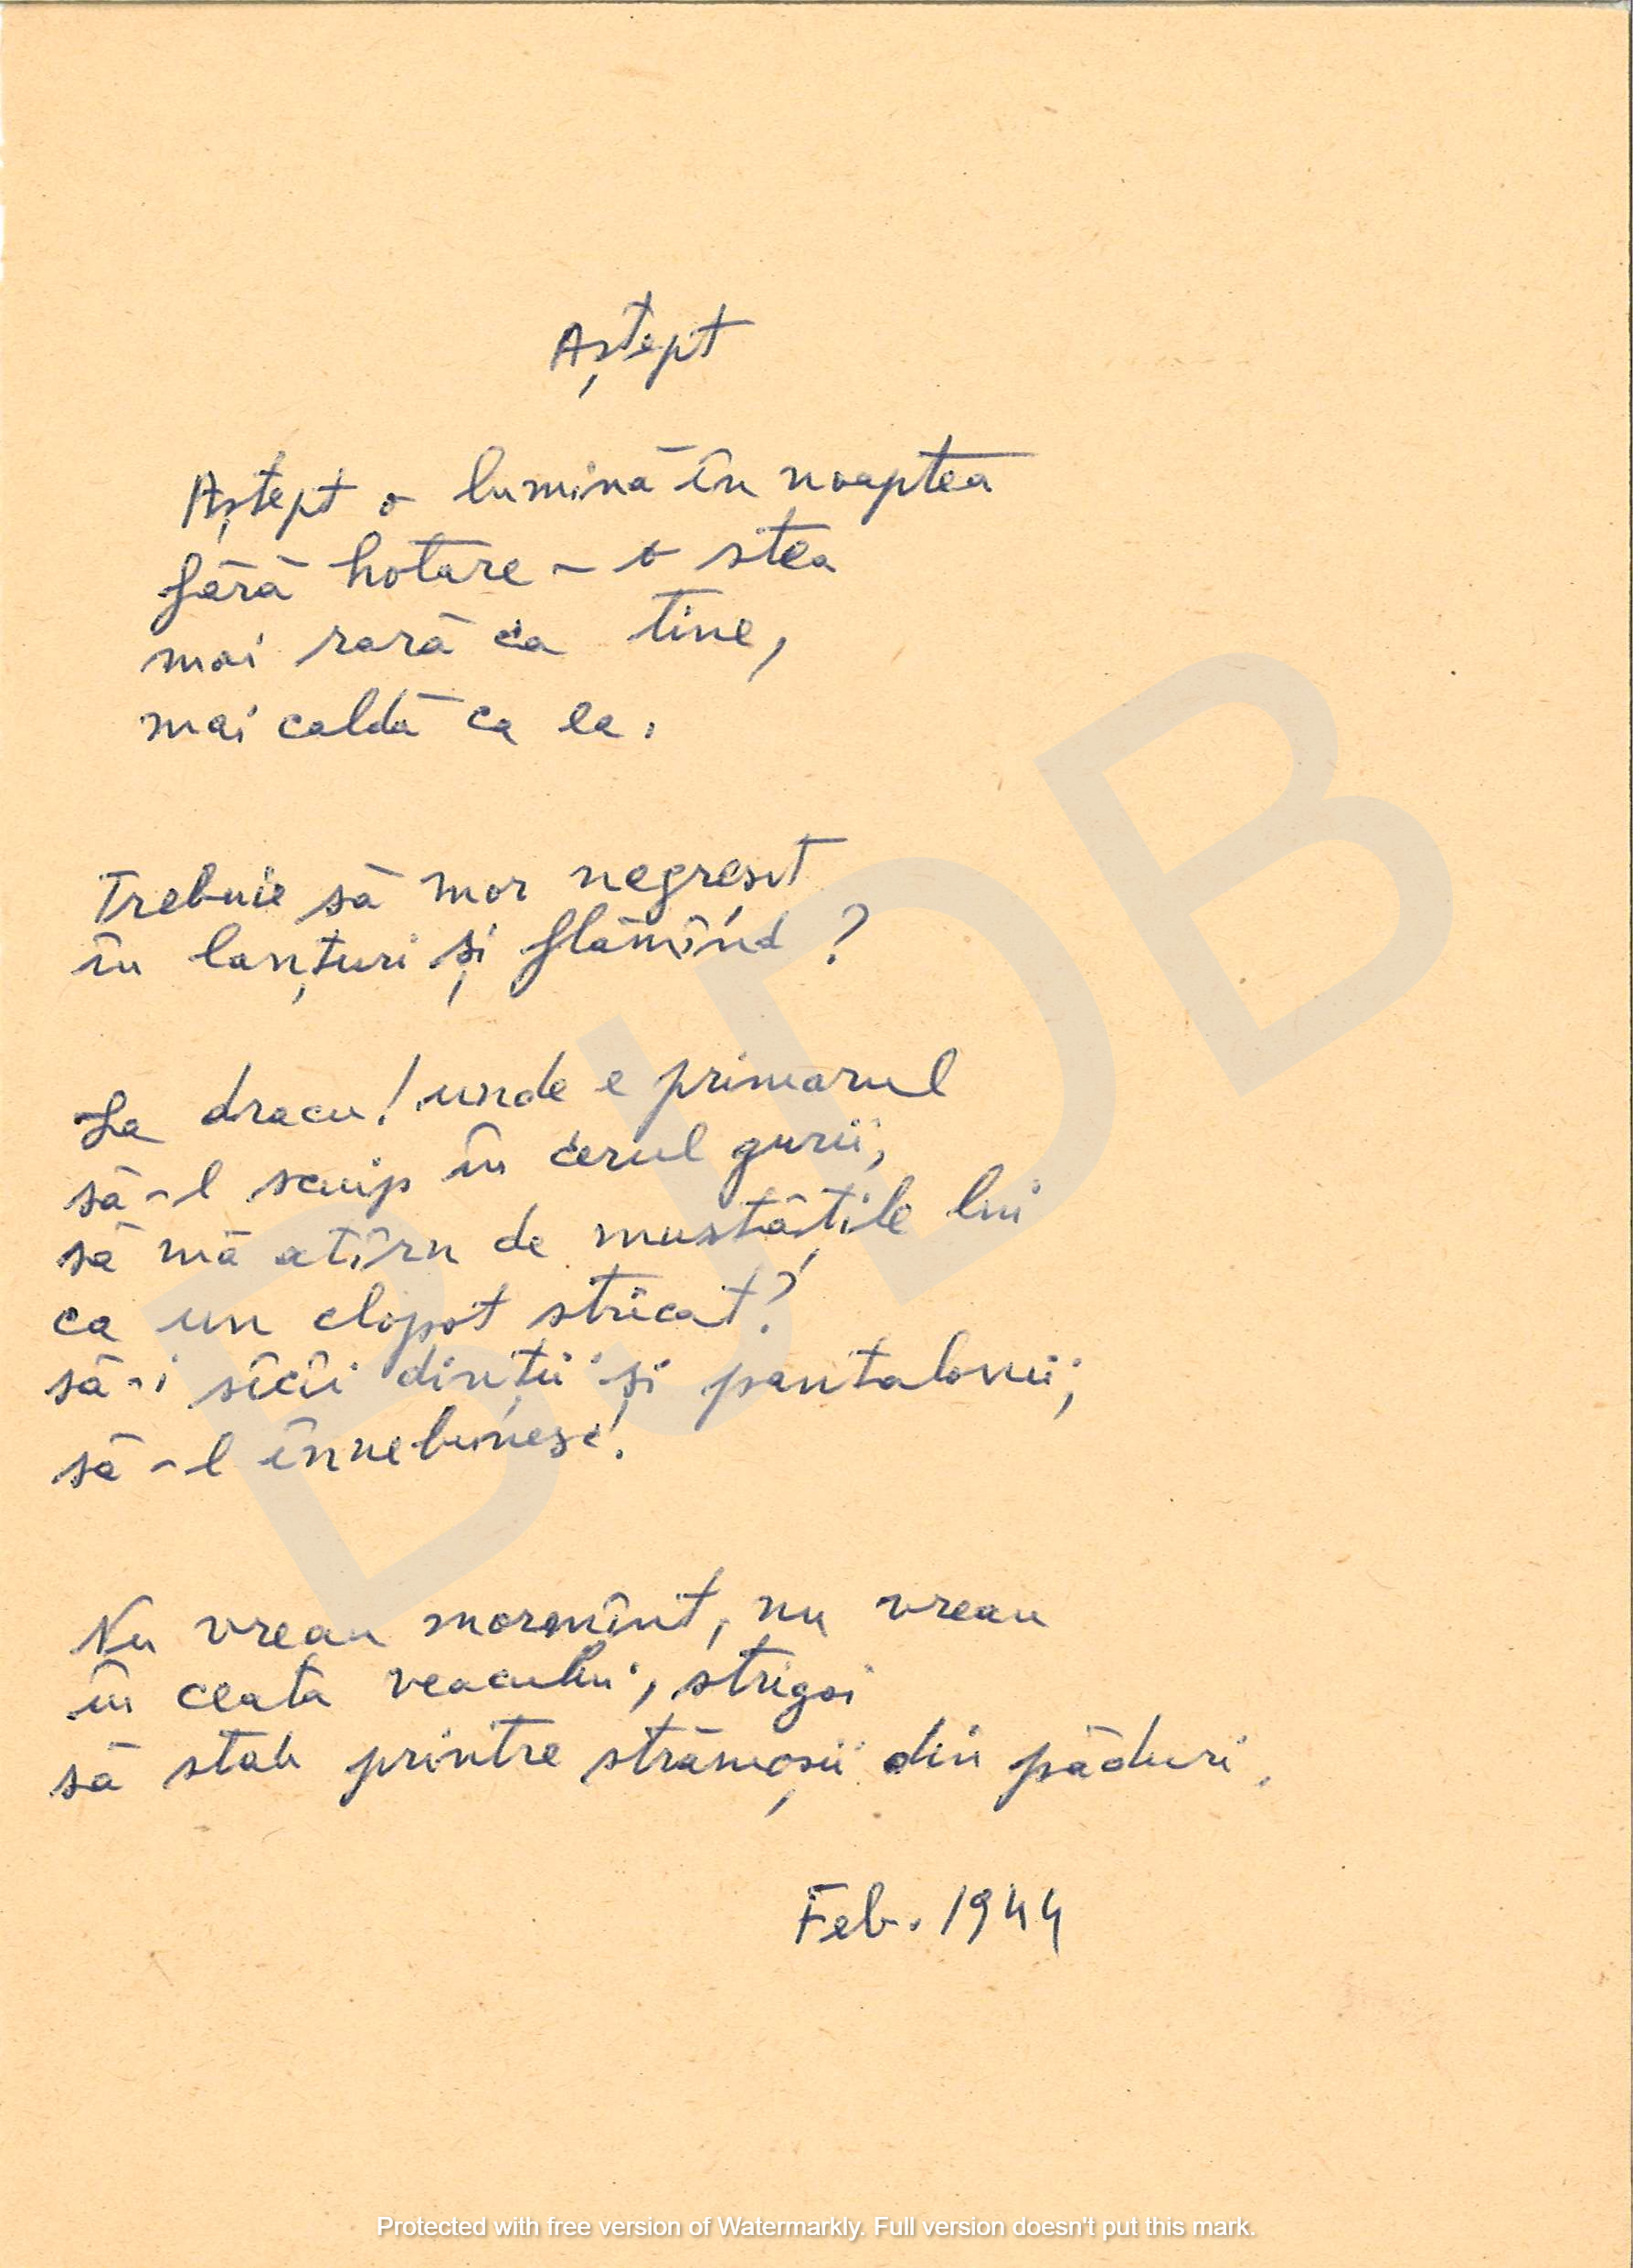 Aștept
Aștept o lumină în noaptea
fără hotare – o stea
mai rară ca tine,
mai caldă ca ea.
Trebuie să mor negreșit
în lanțuri și flămînd?
La dracu! unde e primarul
să-l scuip în cerul gurii,
să mă atîrn de mustățile lui
ca un clopot stricat?
să-i sîcîi dinții și pantalonii,
să-l înnebunesc!
Nu vreau mormînt, nu vreau
în ceata veacului, strigoi
să stau printre strămoșii din păduri.
Feb. 1944
BJDB
Protected with free version of Watermarkly. Full version doesn't put this mark.